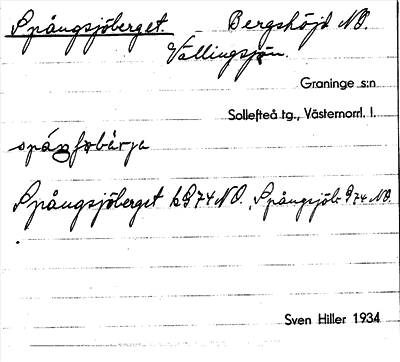 Spångsjöberget. Bergshöjd NO.
Vällingsjön.
Graninge s:n
Sollefteå tg., Västernorrl. l.
Spångsjöberget h974 NO., Spångsjöb. 974 NO.
Sven Hiller 1934